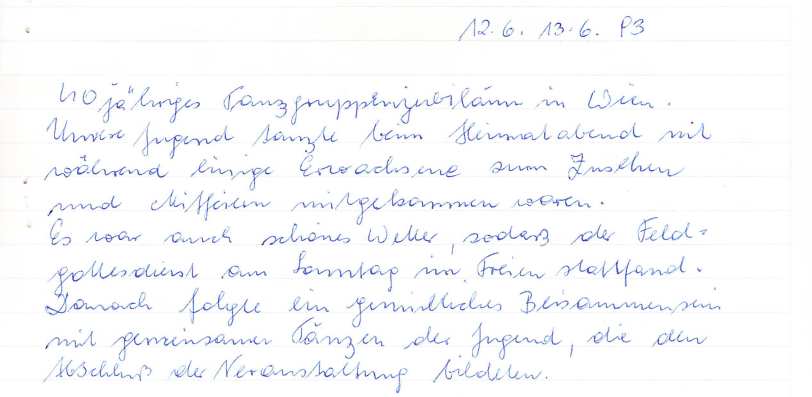 12.6. 13.6. 93
40 jähriges Tanzgruppenjubiläum in Wien.
Unsere Jugend tanzte beim Heimatabend mit
während einige Erwachsene zum Zusehen
und Mitfeiern mitgekommen waren.
Es war auch schönes Wetter, sodaß der Feld=
gottesdienst am Sonntag im Freien stattfand.
Danach folgte ein gemütliches Beisammensein
mit gemeinsamen Tänzen der Jugend, die den
Abschluß der Veranstaltung bildeten.